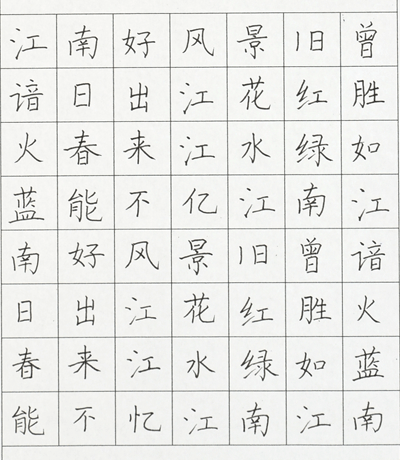 江南好风景旧曾
谙日出江花红胜
火春来江水绿如
蓝能不亿江南江
南好风景旧曾谙
日出江花红胜火
春来江水绿如蓝
能不忆江南江南